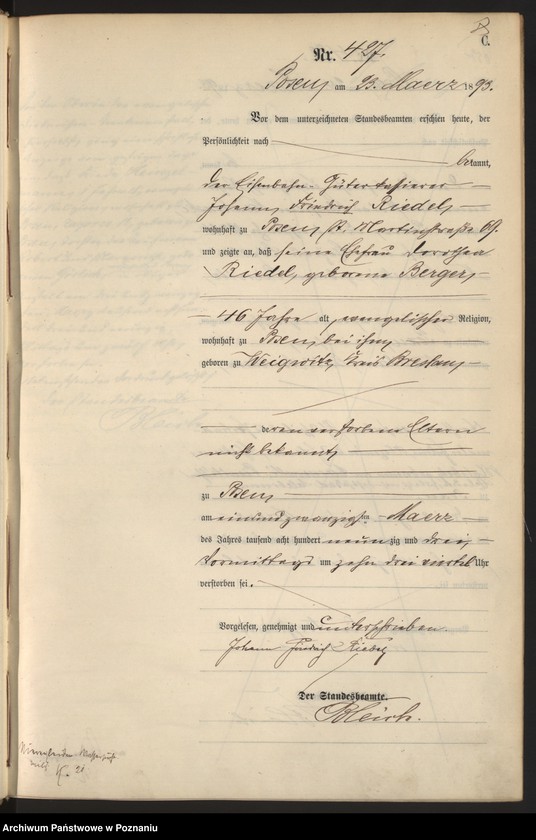 C.
Nr. 427.
Posen, am 23. Maerz 1893.
Vor dem unterzeichneten Standesbeamten erschien heute, der
Persönlichkeit nach
bekannt,
der Eisenbahn-Güterkassierer
Johann Friedrich Riedel,
wohnhaft zu Posen, St. Martinstraße 69.
und zeigte an, daß seine Ehefrau Dorothea
Riedel, geborene Berger,
46 Jahre alt, evangelischer Religion,
wohnhaft zu Posen, bei ihm,
geboren zu Weigwitz, Kreis Breslau,
deren verstorbene Eltern
nicht bekannt,
zu Posen,
am einundzwanzigsten Maerz
des Jahres tausend acht hundert neunzig und drei,
Vormittags um zehn drei viertel Uhr
verstorben sei.
Vorgelesen, genehmigt und unterschrieben.
Johann Friedrich Riedel
Der Standesbeamte.
Bleich.
Archiwum Państwowe w Poznaniu